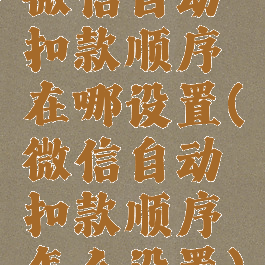 微信自动
扣款顺序
在哪设置(
微信自动
扣款顺序
怎么设置)